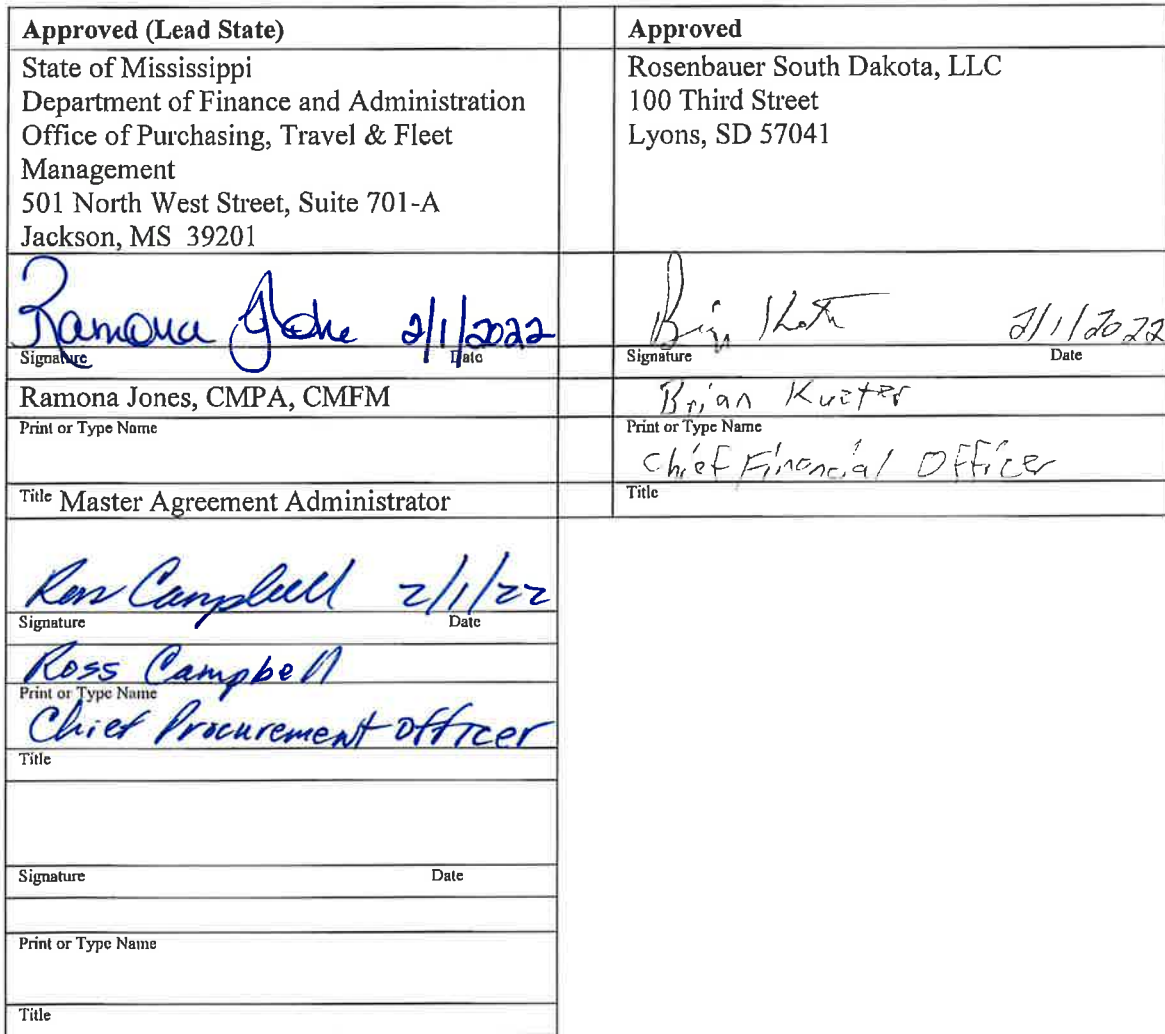 Approved (Lead State)
State of Mississippi
Department of Finance and Administration
Office of Purchasing, Travel & Fleet
Management
501 North West Street, Suite 701-A
Jackson, MS 39201
Ramona Jones 2/1/2022
Signature Date
Ramona Jones, CMPA, CMFM
Print or Type Name
Title Master Agreement Administrator
Ross Campbell 2/1/22
Signature Date
Ross Campbell
Print or Type Name
Chief Procurement Officer
Title
Signature Date
Print or Type Name
Title
Approved
Rosenbauer South Dakota, LLC
100 Third Street
Lyons, SD 57041
2/1/2022
Signature Date
Brian
Print or Type Name
Chief Financial Officer
Title